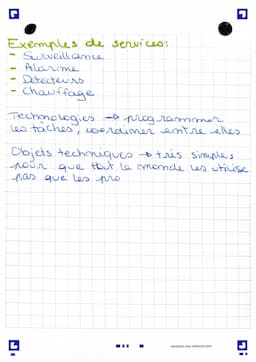 Exemples de services:
- Surveillance
- Alarme
- Détecteurs
- Chauffage
Technologies → programmer
les tâches, coordinner entre elles
Objets techniques → très simples
pour que tout le monde les utilise
pas que les pro